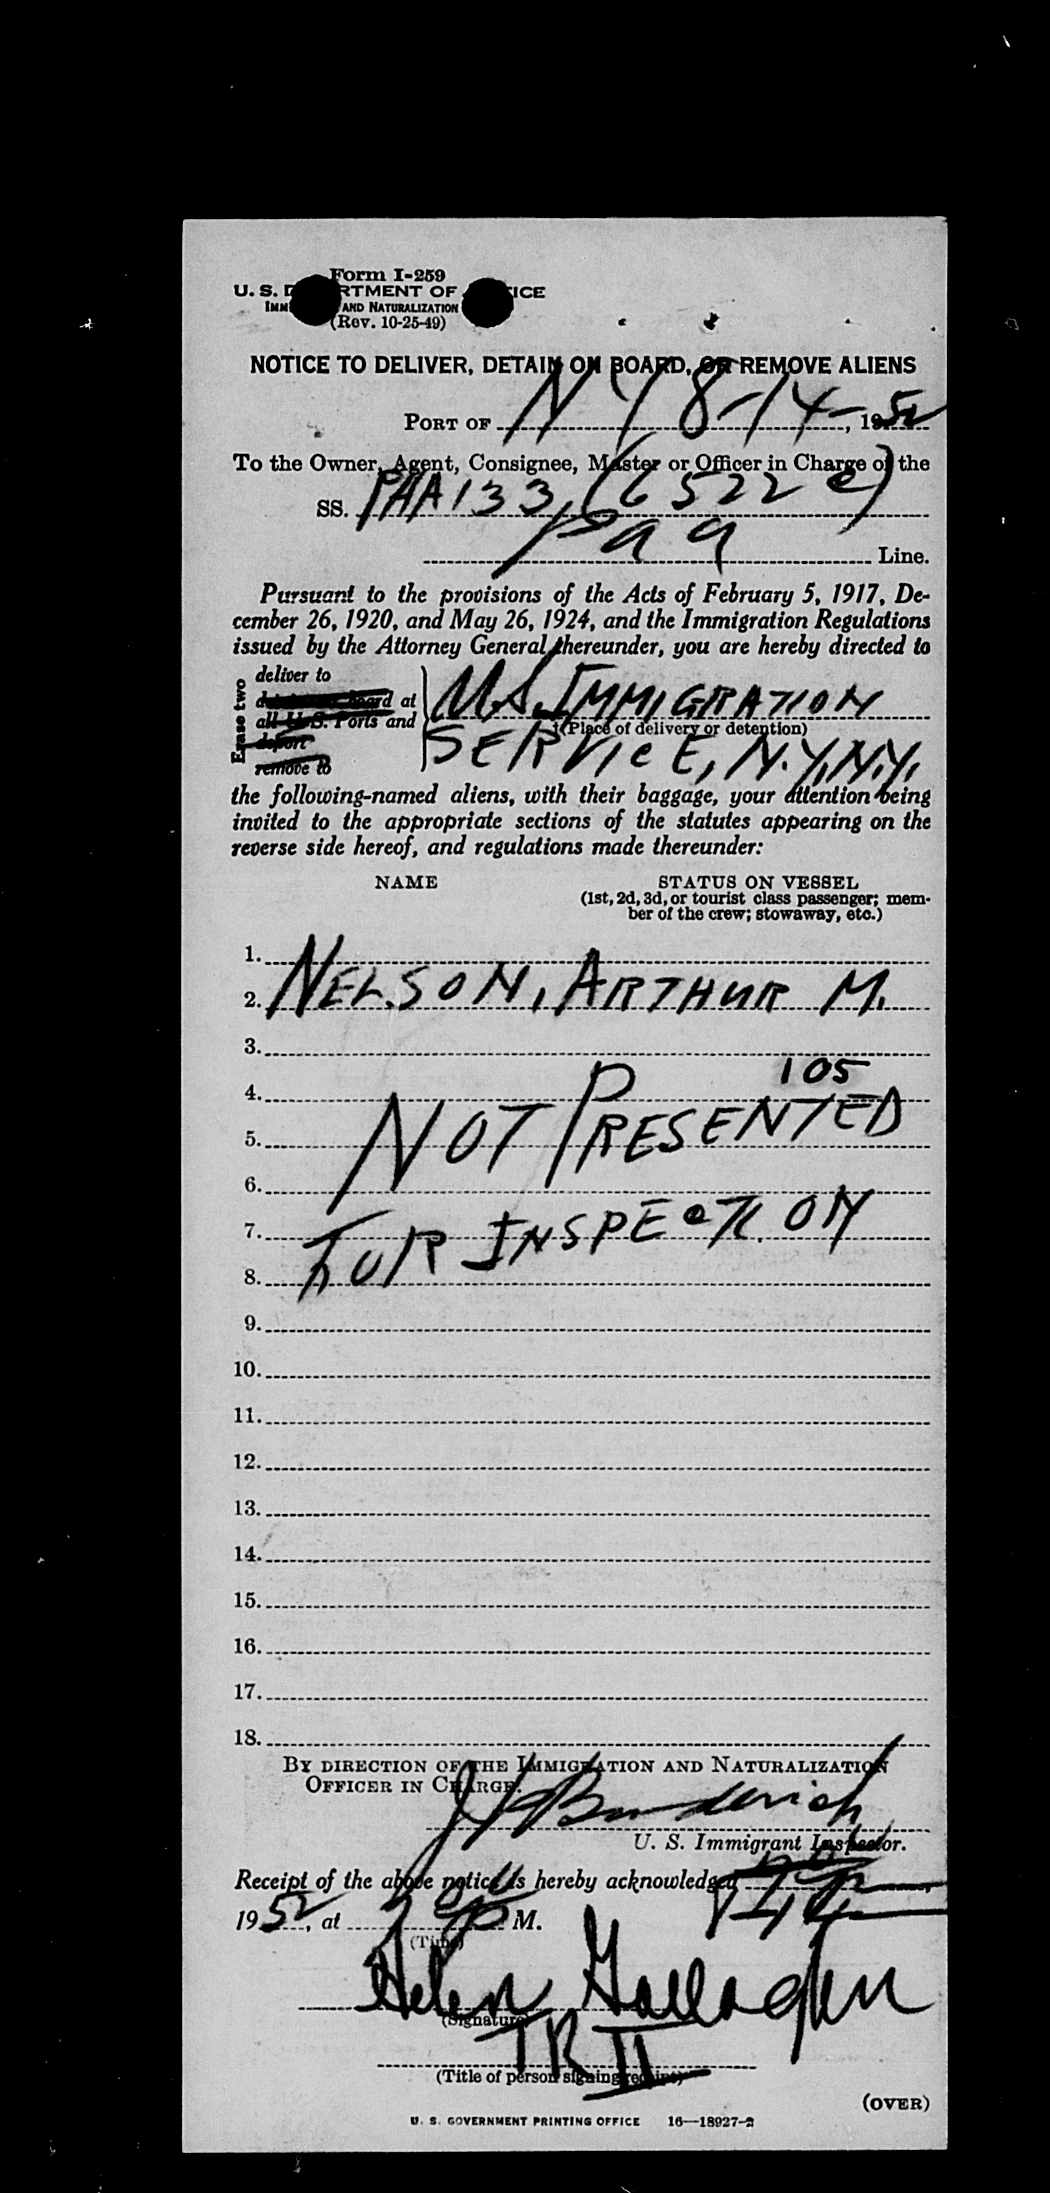 Form I-259
U. S. D RTMENT OF ICE
IMM AND NATURALIZATION
(Rev. 10-25-49)
NOTICE TO DELIVER, DETAIN ON BOARD, OR REMOVE ALIENS
PORT OF N Y 8-14-, 1952
To the Owner, Agent, Consignee, Master or Officer in Charge of the
SS. PAA 133, (6522 e)
Paa Line.
Pursuant to the provisions of the Acts of February 5, 1917, De-
cember 26, 1920, and May 26, 1924, and the Immigration Regulations
issued by the Attorney General thereunder, you are hereby directed to
Erase two
deliver to
detain on board at
all U.S. Ports and
deport
remove to
U.S. IMMIGRATION
(Place of delivery or detention)
SERVICE, N.Y., N.Y.
the following-named aliens, with their baggage, your attention being
invited to the appropriate sections of the statutes appearing on the
reverse side hereof, and regulations made thereunder:
NAME STATUS ON VESSEL
(1st, 2d, 3d, or tourist class passenger; mem-
ber of the crew; stowaway, etc.)
1.
2. NELSON, ARTHUR M.
3.
105
4.
5. NOT PRESENTED
6.
7. FOR INSPECTION
8.
9.
10.
11.
12.
13.
14.
15.
16.
17.
18.
BY DIRECTION OF THE IMMIGRATION AND NATURALIZATION
OFFICER IN CHARGE.
U. S. Immigrant Inspector.
Receipt of the above notice is hereby acknowledged
1952, at M.
(Time)
Helen Gallagher
(Signature)
TR II
(Title of person signing receipt)
(OVER)
U. S. GOVERNMENT PRINTING OFFICE 16—18927-2